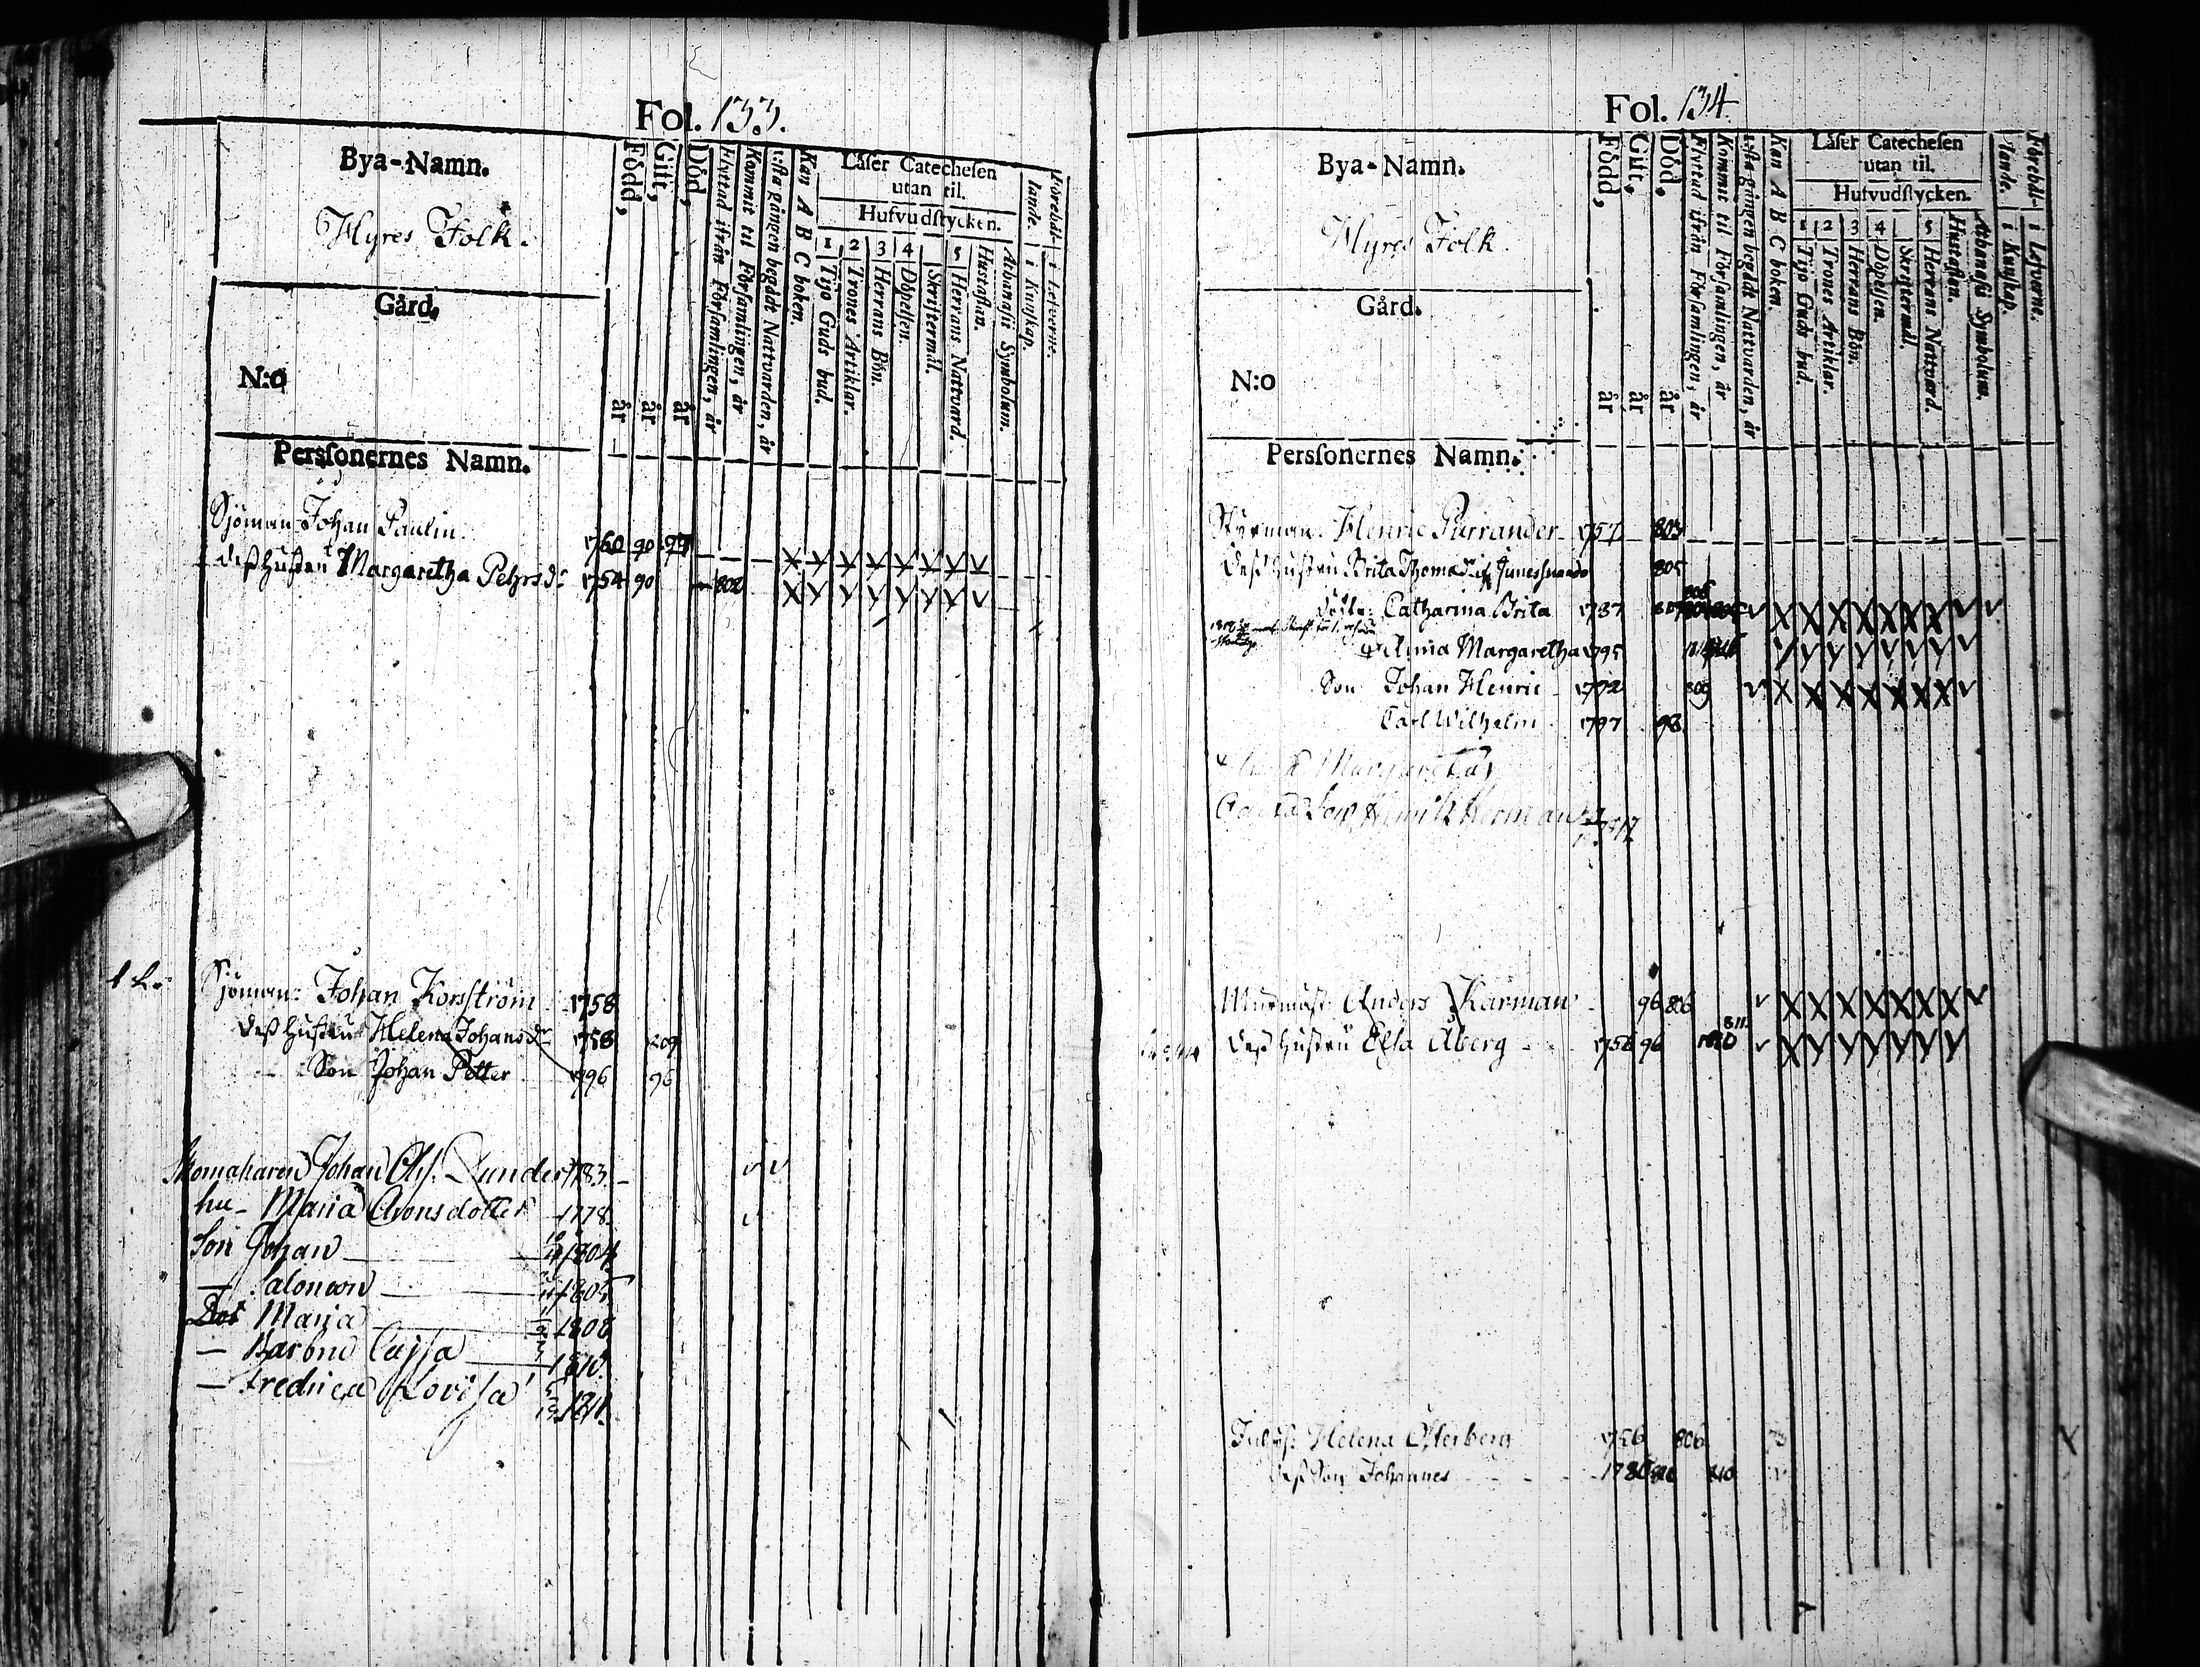 Fol. 133.
Bya-Namn.
Hyres Folk.
Gård.
N:o
Perſonernes Namn.
Född, år
Gift, år
Död, år
Flyttad ifrån Förſamlingen, år
Kommit til Förſamlingen, år
Förſta gången begådt Nattvarden, år
Kan A B C boken.
Läſer Catecheſen utan til.
Hufvudſtycken.
1 Tijo Guds bud.
2 Trones Artiklar.
3 Herrans Bön.
4 Döpelſen.
Skriftermål.
5 Herrans Nattvard.
Huſtaflan.
Athanaſii Symbolum.
Förehål-lande.
i Kunſkap.
i Lefverne.
Sjöman Johan Paulin 1760 90 97
deß huſtru Margaretha Pehrsdr 1754 90 802
Sjöman: Johan Korsſtröm 1758
deß huſtru Helena Johansdr 1758 209
Son Johan Petter 1796 96
Skomakaren Johan Lunder 1783
hu- Maria Aronsdotter 1778
Son Johan 1804
— Salomon 1805
Dot Maria 1808
— Cajsa 1810
— Fredrica Lovisa 1811
Fol. 134.
Bya-Namn.
Hyres Folk.
Gård.
N:o
Perſonernes Namn.
Född, år
Gift, år
Död, år
Flyttad ifrån Förſamlingen, år
Kommit til Förſamlingen, år
Förſta gången begådt Nattvarden, år
Kan A B C boken.
Läſer Catecheſen utan til.
Hufvudſtycken.
1 Tijo Guds bud.
2 Trones Artiklar.
3 Herrans Bön.
4 Döpelſen.
Skriftermål.
5 Herrans Nattvard.
Huſtaflan.
Athanaſii Symbolum.
Förehål-lande.
i Kunſkap.
i Lefverne.
Styrman: Henric Purrander 1757 803
deß huſtru Brita Thomasdr 805
Catharina Brita 1787
Anna Margaretha 1795
Son Johan Henric 1792 809
Carl Wilhelm 1797 98
Margareta
Son Henrik Herman
Murmäst: Anders Kärman 96 806
deß huſtru Elſa Åberg 1756 96 811
Helena Öſterberg 1756 806
deß Son Johannes 1780 810